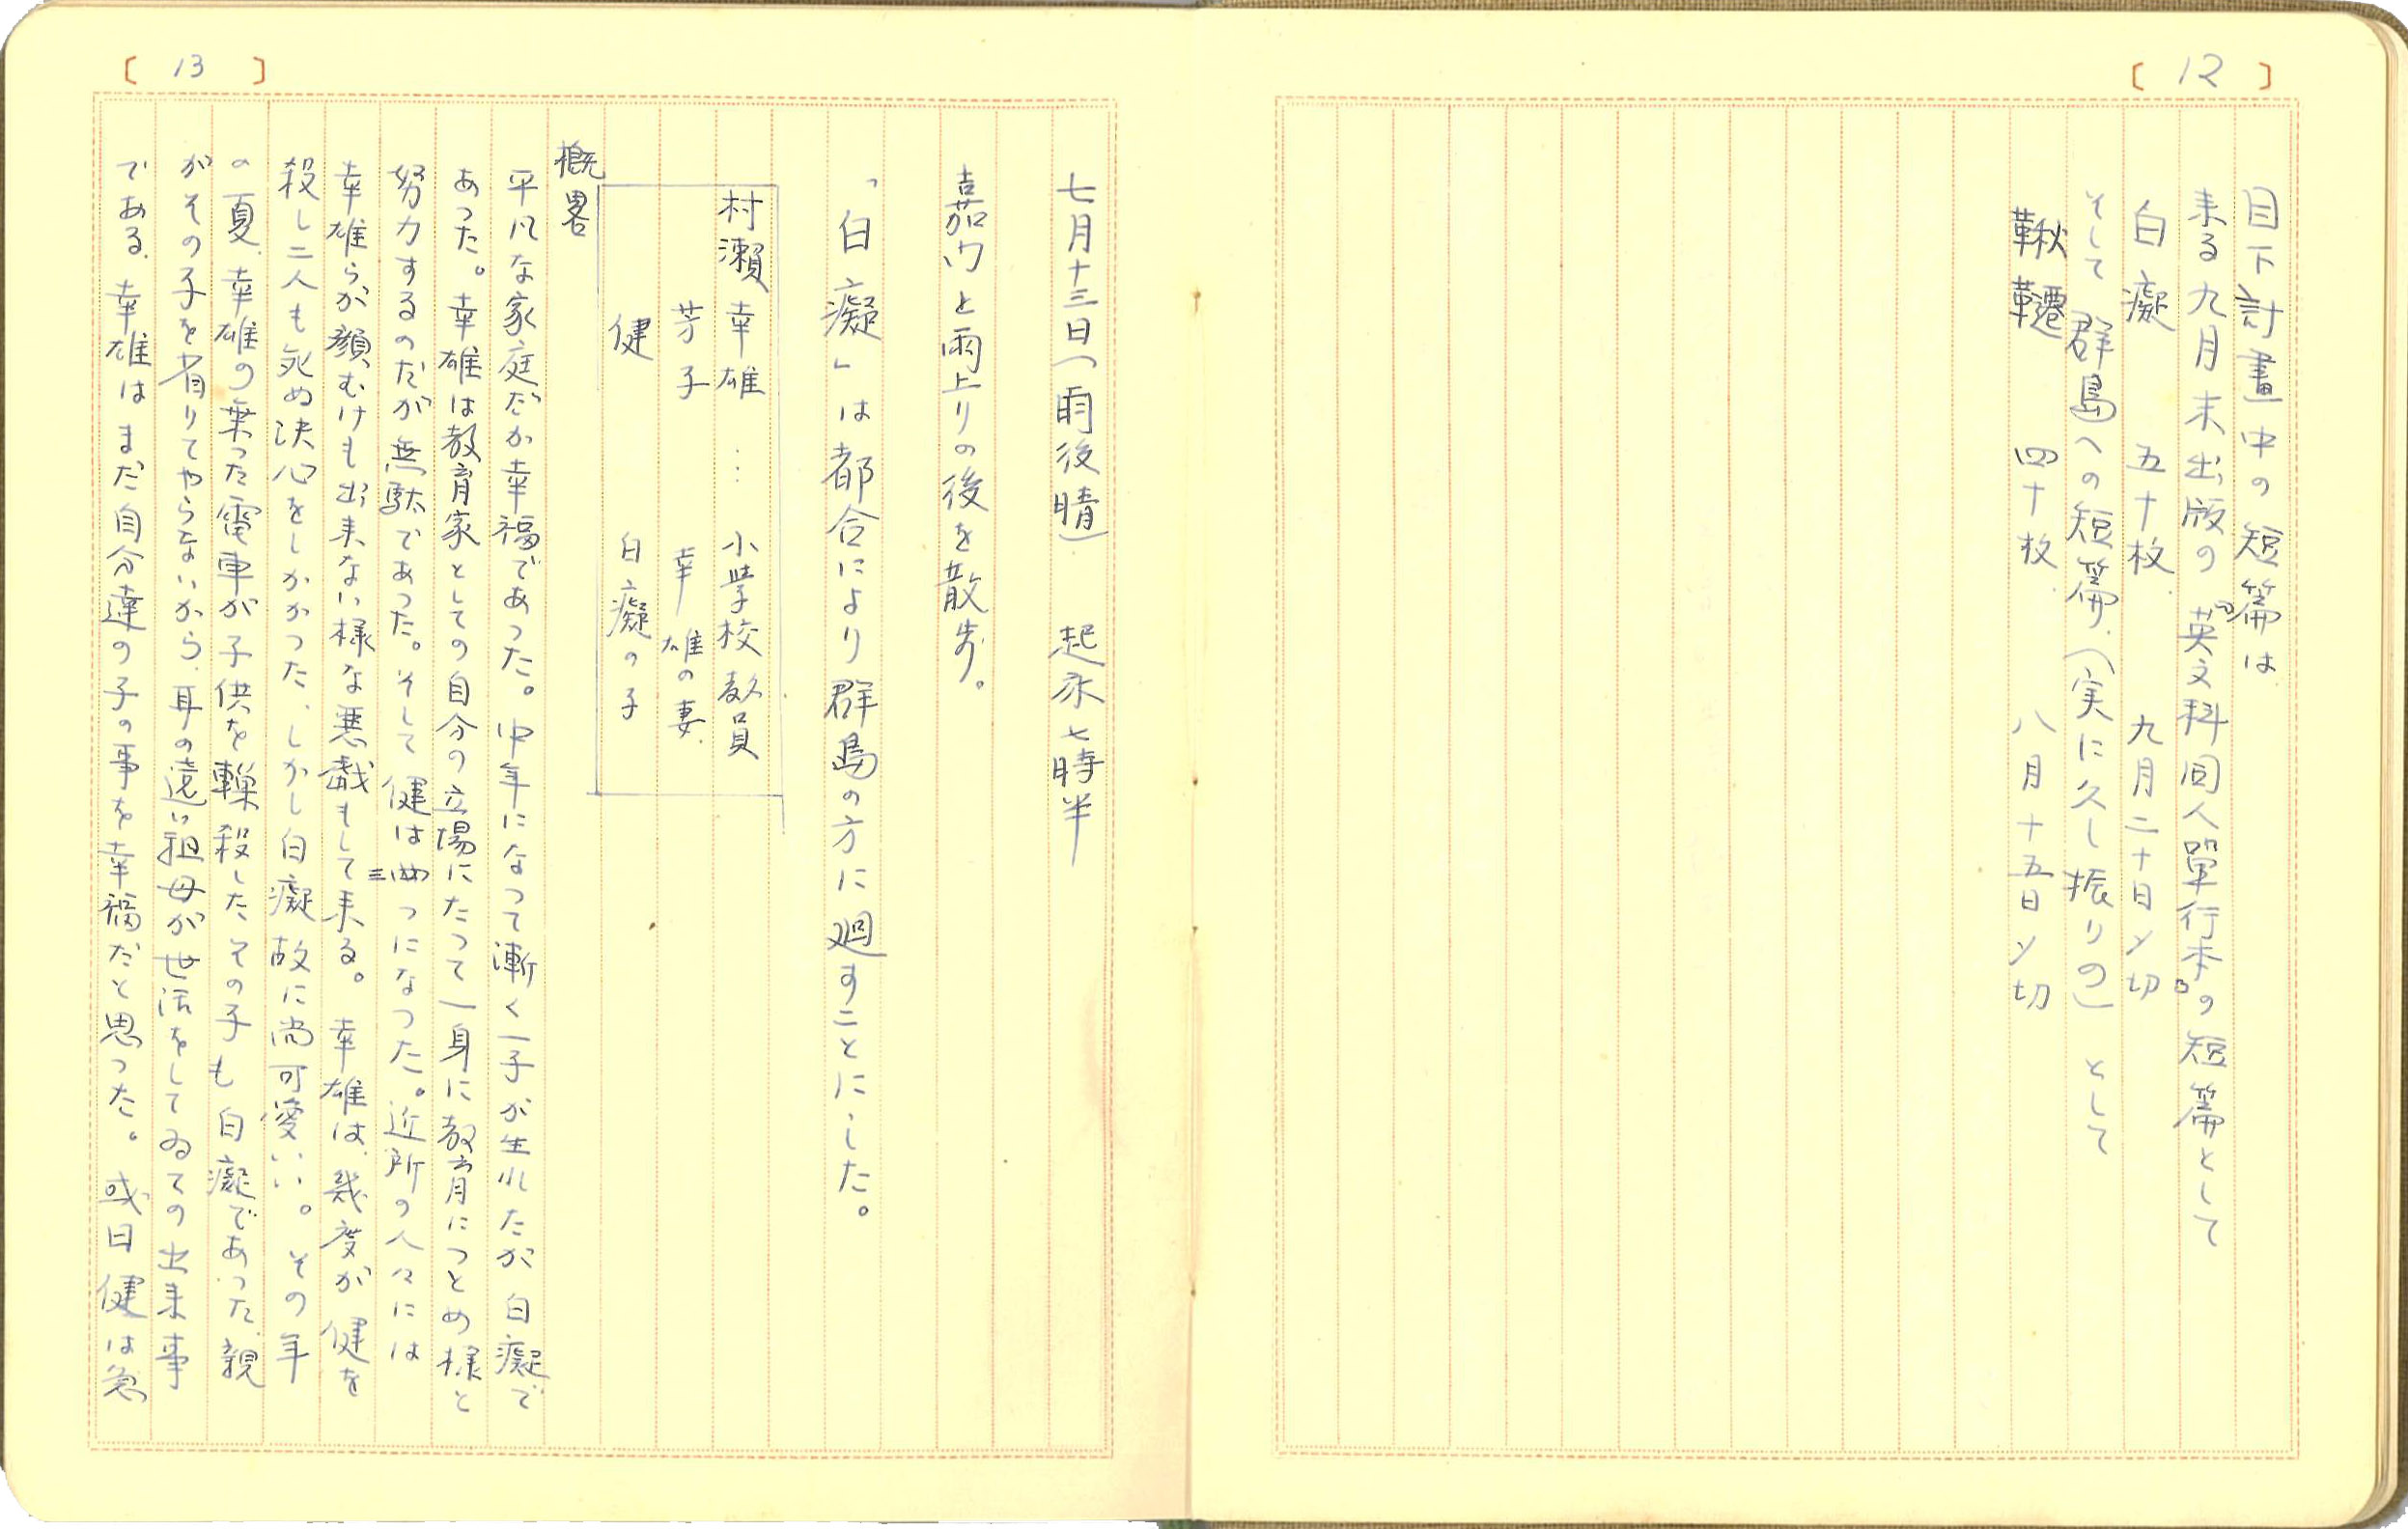 [ 12 ]
目下計畫中の短篇は
来る九月末出版の『英文科同人單行本』の短篇として
白癡 五十枚. 九月二十日〆切
そして群島への短篇.(実に久し振りの)として
鞦韆 四十枚. 八月十五日〆切
[ 13 ]
七月十三日(雨後晴) 起床七時半
嘉内と雨上りの後を散歩。
「白癡」は都合により群島の方に廻すことにした。
村瀬幸雄 … 小学校教員
芳子 幸雄の妻.
健 白癡の子
概畧
平凡な家庭だが幸福であった。中年になって漸く一子が生れたが白癡で
あった。幸雄は教育家としての自分の立場にたって一身に教育につとめ様と
努力するのだが無駄であった。そして健は三つになった。近所の人々には
幸雄らが顔むけも出来ない様な悪戯もして来る。幸雄は幾度が健を
殺し二人も死ぬ決心をしかかった、しかし白癡故に尚可愛いい。その年
の夏、幸雄の乗った電車が子供を轢殺したその子も白癡であった、親
がその子を省りてやらないから、耳の遠い祖母が世活をしてゐての出来事
である、幸雄はまだ自分達の子の事を幸福だと思った。或日健は急